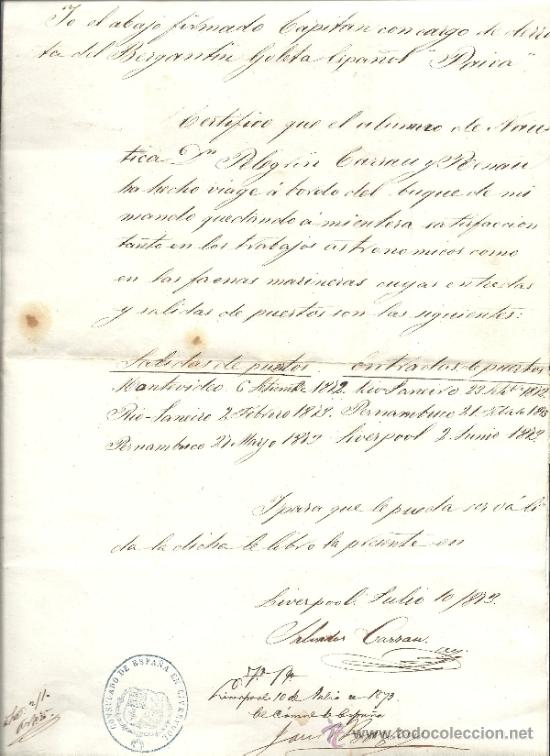 Yo el abajo firmado Capitan con cargo de derro
ta del Bergantin Goleta Español "
Certifico que el alumno de Nau
tica Dn Pelegrin Carrau y
ha hecho viage á bordo del buque de mi
mando quedando á mi entera satisfaccion
tanto en los trabajos astronomicos como
en las faenas marineras cuyas entradas
y salidas de puertos son las siguientes:
Salidas de puertos Entradas de puertos
Montevideo 6 Rio Janeiro
Rio-Janeiro 2 Febrero Pernambuco 21
Pernambuco 27 Mayo Liverpool 2 Junio
Y para que le pueda ser váli
da la dicha le libro la presente en
Liverpool Julio 10/873.
Salvador Carrau
Liverpool 10 de Julio de 1873
El Cónsul de España
CONSULADO DE ESPAÑA EN LIVERPOOL
www.todocoleccion.net